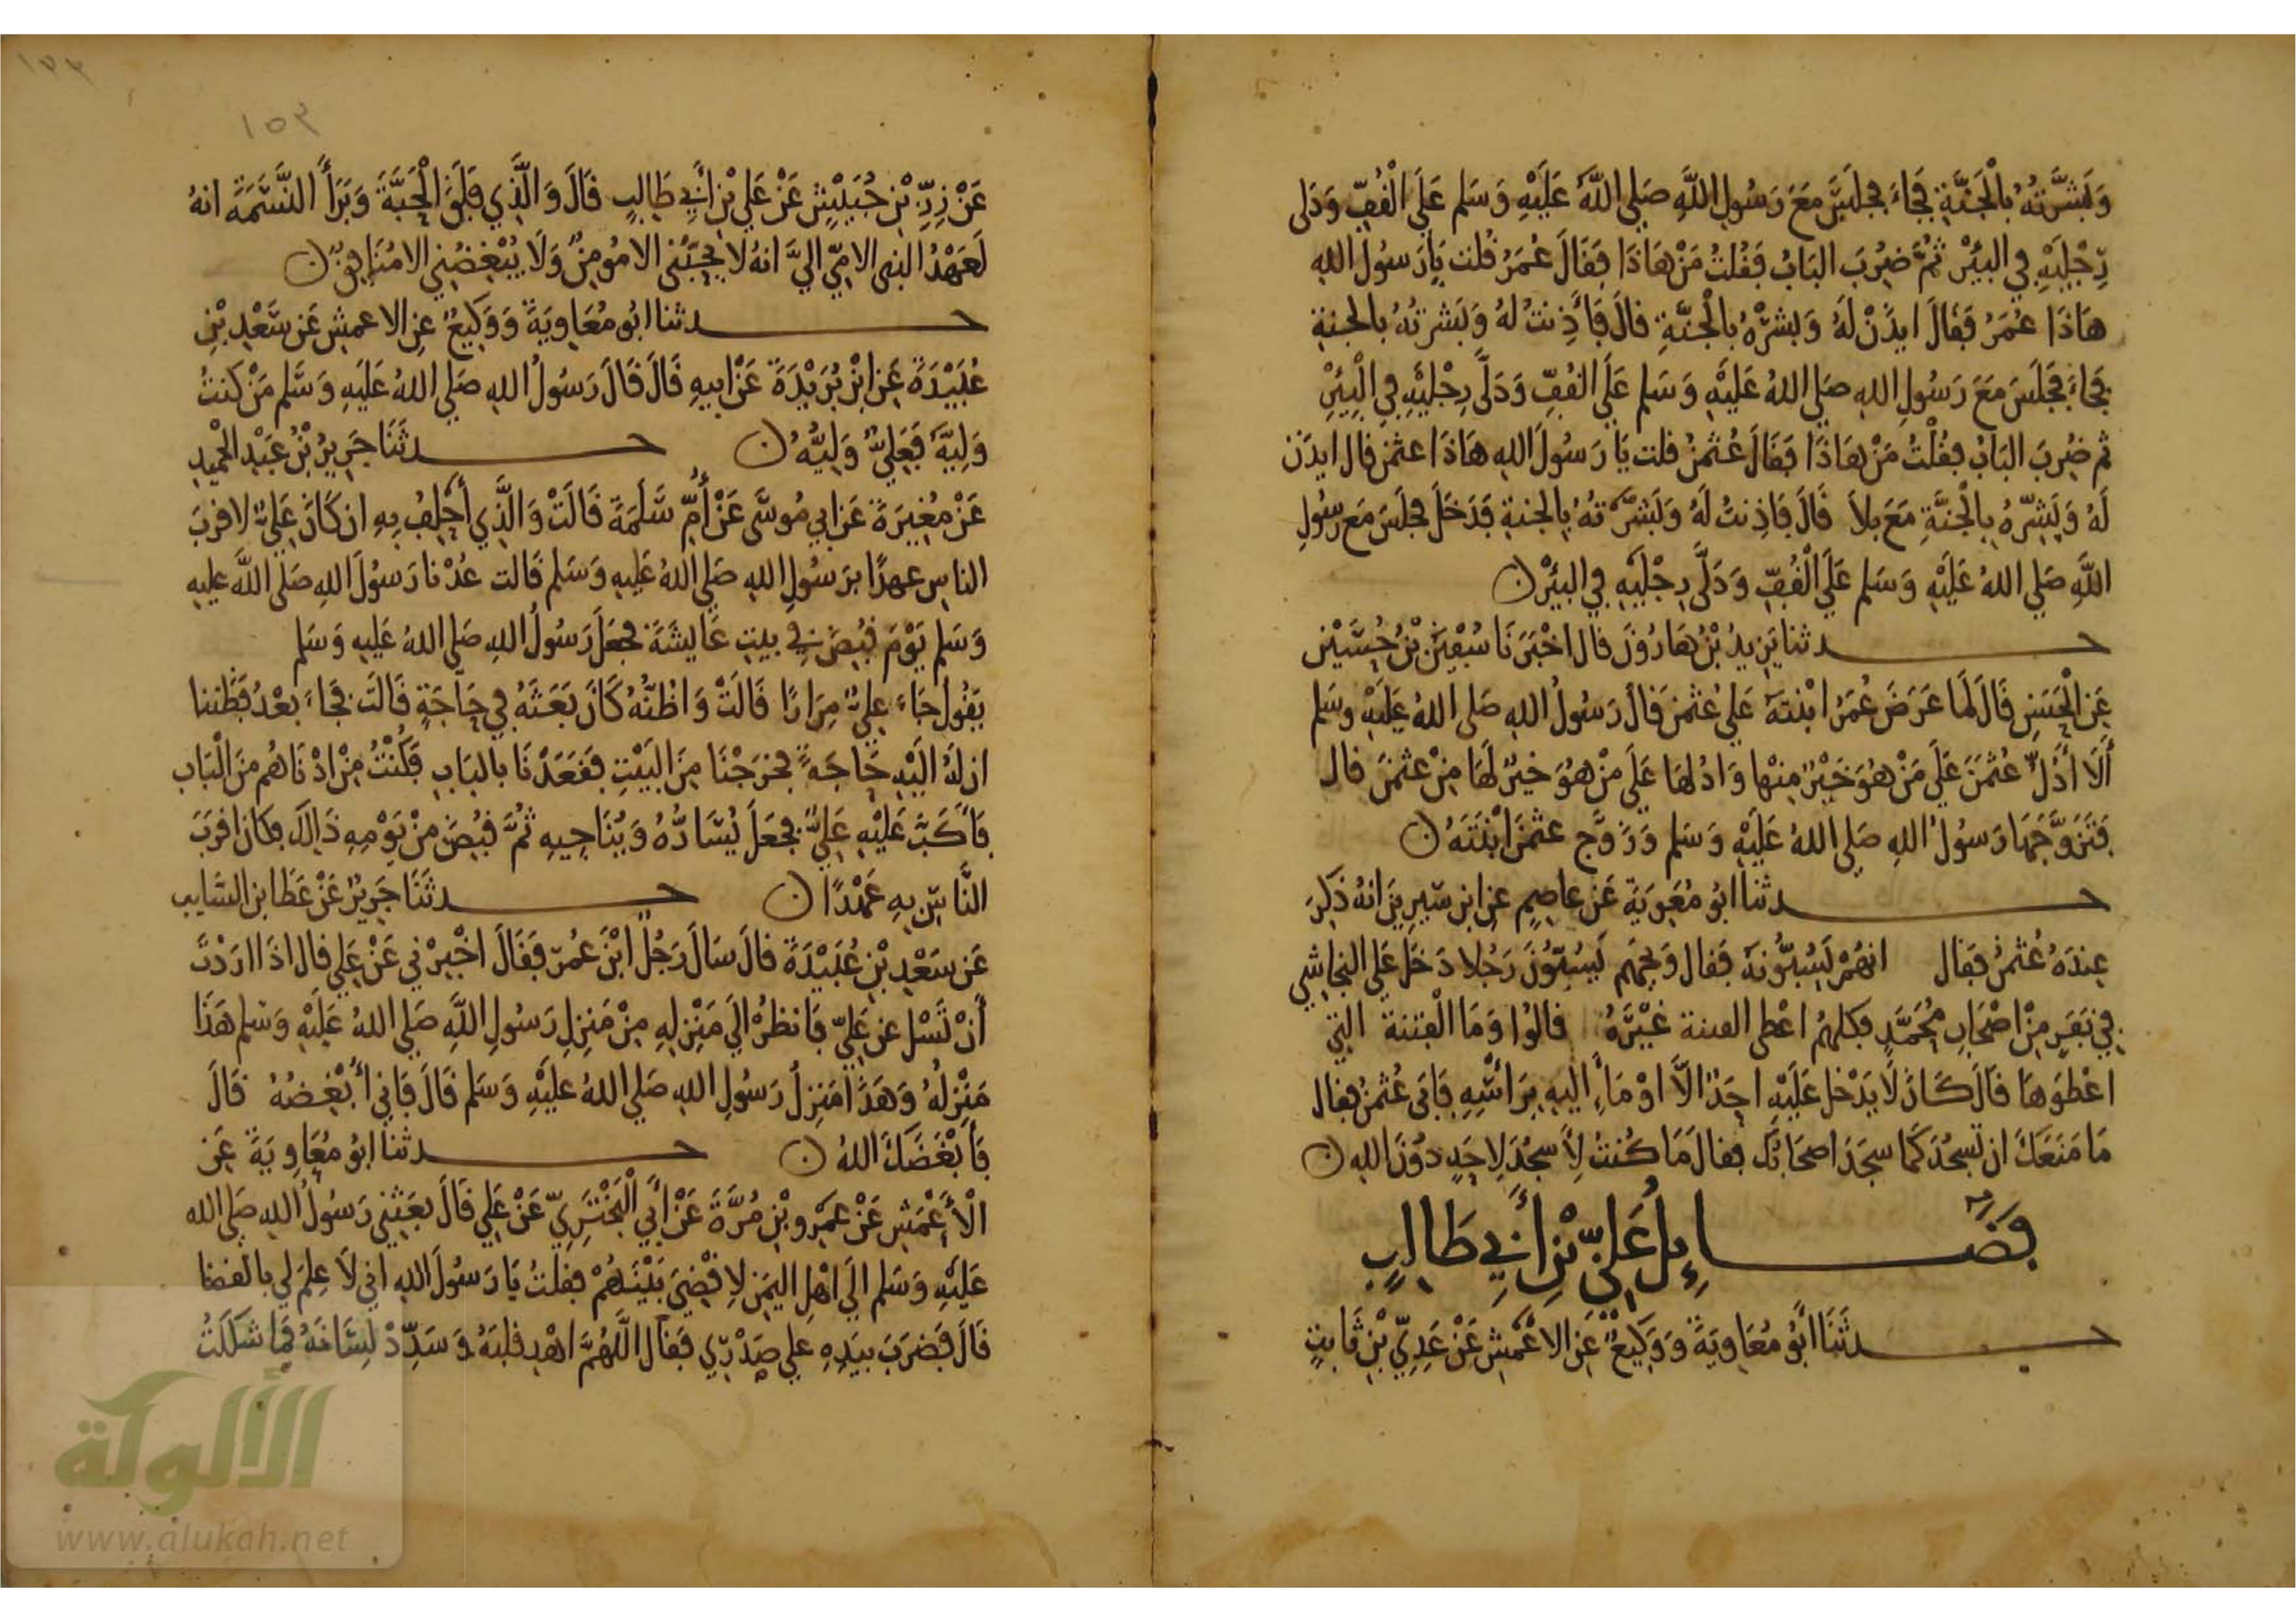 وَبَشَّرتُهُ بِالْجَنَّةِ فَجَاءَ فجلسَ مَعَ رَسُولِ اللَّهِ صَلى اللَّهُ عَلَيْهِ وَسَلم عَلَى الْقُفِّ وَدَلى
رِجْلَيْهِ فِي البئْرِ ثُمَّ ضُرِبَ البَابُ فَقُلتُ مَنْ هَاذَا فَقَالَ عُمَرُ قُلت يَا رَسُولَ اللهِ
هَاذَا عُمَرُ فَقَالَ ايذَنْ لَهُ وَبشرْهُ بِالْجَنَّةِ قَالَ فَأَذِنتُ لهُ وَبَشرتُهُ بالجنةِ
فَجَاءَ فَجَلَسَ مَعَ رَسُولِ اللهِ صَلى اللهُ عَلَيْهِ وَسَلم عَلَى القُفِّ وَدَلَّى رِجْلَيْهِ فِي الْبِئرِ
ثم ضُرِبَ البَابُ فقُلْتُ مَنْ هَاذَا فَقَالَ عُثمنُ قلت يَا رَسُولَ اللهِ هَاذَا عثمن قال ايذَن
لَهُ وَبَشِّرْهُ بِالْجَنَّةِ مَعَ بَلاَ قَالَ فَاذِنتُ لَهُ وَبَشَّرتهُ بِالجنةِ فَدَخَلَ فجلَسَ مَع رسُولِ
اللَّهِ صَلي اللهُ عَلَيْهِ وَسَلم عَلَي الْقُفِّ وَدَلَّى رِجْلَيْهِ فِي البئرْ ن
حدثنا يَزِيدُ بْنُ هَارُونَ قال اخْبَرَنَا سُفْيَنُ بْنُ حُسَيْنٍ
عَنِ الْحَسَنِ قَالَ لَمَا عَرَضَ عُمَرُ ابْنتَهُ عَلَي عُثمنَ قَالَ رَسُولُ اللهِ صَلى اللهُ عَلَيْهِ وسَلم
أَلَا أَدُلُّ عُثمَنَ عَلَى مَنْ هُوَ خَيْرٌ مِنْها وَادُلهَا عَلَى مَنْ هُوَ خيرٌ لَهَا مِنْ عثمنَ قال
فَتَزَوَّجَهَا رَسُولُ اللهِ صَلي اللهُ عَلَيْهِ وَسَلم وَزَوَّج عثمنَ ابْنَتَهُ ن
حدثنا ابُو مُعَوِيَة عَن عاصِمٍ عَن ابن سيرِينَ انهُ ذكِرَ
عِندَهُ عُثمنُ فقال انهُمْ لَيَسُبُّونهُ فَقال وَيحَهم يَسُبُّونَ رَجُلا دَخلَ عَلى النجَاشِي
فِي نَفَرٍ مِنْ اصْحَابِ مُحَمَّدٍ فكلهُمْ اعْطى الفتنة غَيْرَهُ قالوُا وَمَا الْفِتنة التي
اعْطوَهَا قالَ كَانَ لَا يَدْخل عَلَيْهِ احَدٌ الَّا اوْمَاءَ إليهِ بِرَأسِهِ فَابَى عُثمنُ فقال
مَا مَنَعَكَ ان تَسجُدَ كَما سجَدَ اصحَابُكَ فقالَ مَا كُنتُ لأَسجُدَ لِاحَدٍ دُوْنَ اللهِ ن
فضَـــائِلُ عَلِىِّ بْنِ أَبِي طَالِبٍ
حدثَنَا ابُو مُعَاوِيَةَ وَوَكِيعٌ عَنِ الاعْمَشِ عَنْ عَدِيِّ بْنِ ثَابِتٍ
١٥٣
عَنْ زِرِّ بْنِ حُبَيْشٍ عَنْ عَلِي بْنِ أَبِي طَالِبٍ قَالَ وَالَّذِي فَلَقَ الْحَبَّةَ وَبَرَأَ النَّسَمَةَ انهُ
لَعَهْدُ النبى الامِّي اليَّ انهُ لا يحِبُّنِي الا مُومِنٌ وَلَا يُبْغِضُنِي الا مُنَافِقٌ ن
حدثنا ابُو مُعَاوِيَةَ وَوَكِيعٌ عَنِ الاعمشِ عَن سَعْدِ بْنِ
عُبَيْدَةَ عَنِ ابْنِ بُرَيْدَةَ عَنْ ابيهِ قَالَ قَالَ رَسُولُ اللهِ صَلي اللهُ عَلَيهِ وَسَلم مَنْ كنتُ
وَلِيَّهُ فَعَلِيٌّ وَلِيُّهُ ن حدثَنَا جَرِيرُ بْنُ عَبْدِ الْحَمِيدِ
عَنْ مُغِيرَةَ عَن ابِي مُوسَى عَنْ أُمِّ سَلَمَةَ قَالَتْ وَالَّذِي أَحْلِفُ بِهِ ان كَانَ عَلِيٌّ لاقربَ
الناسِ عهدًا برَسُولِ اللهِ صَلي اللهُ عَليهِ وَسَلم قَالت عُدْنا رَسُولَ اللهِ صَلى اللَّه عليه
وَسَلم يَوْمَ قُبِضَ فِي بيتِ عَايشَةَ فجعَلَ رَسُولُ اللهِ صَلي اللهُ عَليهِ وَسَلم
يَقُولُ جَاءَ عَلِيٌّ مِرَارًا قَالَتْ وَاظُنُّهُ كَانَ بَعَثَهُ فِي حَاجَةٍ قَالَت فجَاءَ بَعْدُ فظننا
ان لهُ الَيْهِ حَاجَة فخرَجْنَا مِنَ البَيْتِ فقَعَدْنَا بالبَابِ فَكُنْتُ مِنْ ادْنَاهُم مِنَ الْبَاب
فَأَكَبَّ عَلَيْهِ عَلِيٌّ فجعَلَ يُسَارُّهُ وَيُنَاجِيهِ ثُمَّ قُبِضَ مِنْ يَوْمِهِ ذَالِكَ فكان اقرَبَ
النَّاسِ بِهِ عَهْدًا ن حدثَنَا جَرِيرٌ عَنْ عَطَا بن السَّايب
عَن سَعْدِ بْنِ عُبَيْدَةَ قَالَ سَالَ رَجُلٌ ابْنَ عُمَرَ فَقَالَ اخْبِرْنِي عَنْ عَلِي قال اذَا ارَدْتَ
أَنْ تَسْلَ عَن عَلِيٍّ فَانظرْ الَي مَنْزِلِهِ مِنْ مَنزِلِ رَسُولِ اللَّهِ صَلي اللهُ عَلَيْهِ وَسَلم هَذَا
مَنْزِلُهُ وَهَذَا مَنزِلُ رَسُولِ اللهِ صَلي اللهُ عَليْهِ وَسَلم قَالَ فَاني أُبْغِضُهُ قَالَ
فَأَبْغَضَكَ اللهُ ن حدثنا ابُو مُعَاوِيَةَ عَن
الْأَعْمَشِ عَنْ عَمْرِو بْنِ مُرَّةَ عَنْ أَبِي الْبَخْتَرِيِّ عَنْ عَلِي قَالَ بعَثنِي رَسُولُ اللهِ صَلي الله
عَلَيْهِ وَسَلم الَي اهْلِ اليَمَنِ لاقْضِيَ بَيْنَهُمْ فقلتُ يَا رَسُولَ اللهِ اني لاَ عِلمَ لي بالقضا
قَالَ فَضرَبَ بيَدِهِ علي صَدْرِي فَقَال اللَّهُمَّ اهْدِ قلبَهُ وَسَدِّدْ لِسَانَهُ فمَا شكَكتُ
الألوكة
www.alukah.net